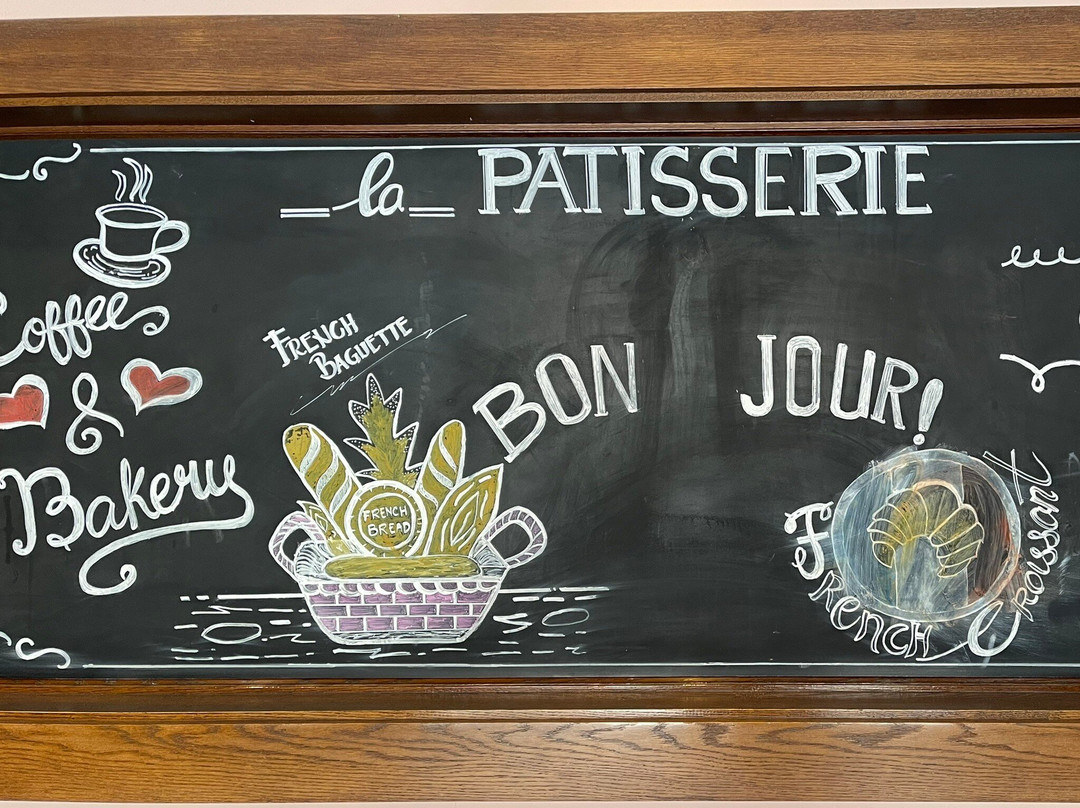 la PATISSERIE
Coffee
&
Bakery
FRENCH
BAGUETTE
FRENCH
BREAD
BON JOUR!
FRENCH Croissant